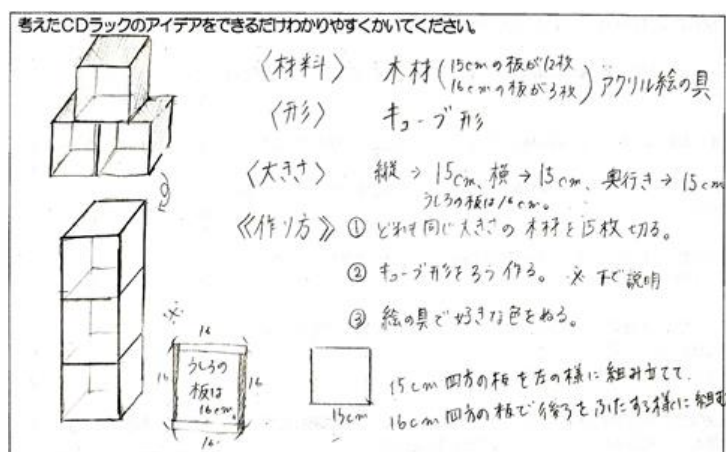 考えたCDラックのアイデアをできるだけわかりやすくかいてください。
〈材料〉 木材(15cmの板が12枚 16cmの板が3枚)アクリル絵の具
〈形〉 キューブ形
〈大きさ〉 縦→15cm、横→15cm、奥行き→15cm
うしろの板は16cm。
《作り方》① どれも同じ大きさの木材を15枚切る。
② キューブ形を3つ作る。 ※下で説明
③ 絵の具で好きな色をぬる。
※
16
16
うしろの板は16cm。
16
16
15cm
15cm四方の板を左の様に組み立てて、
16cm四方の板で後ろをふたする様に組む